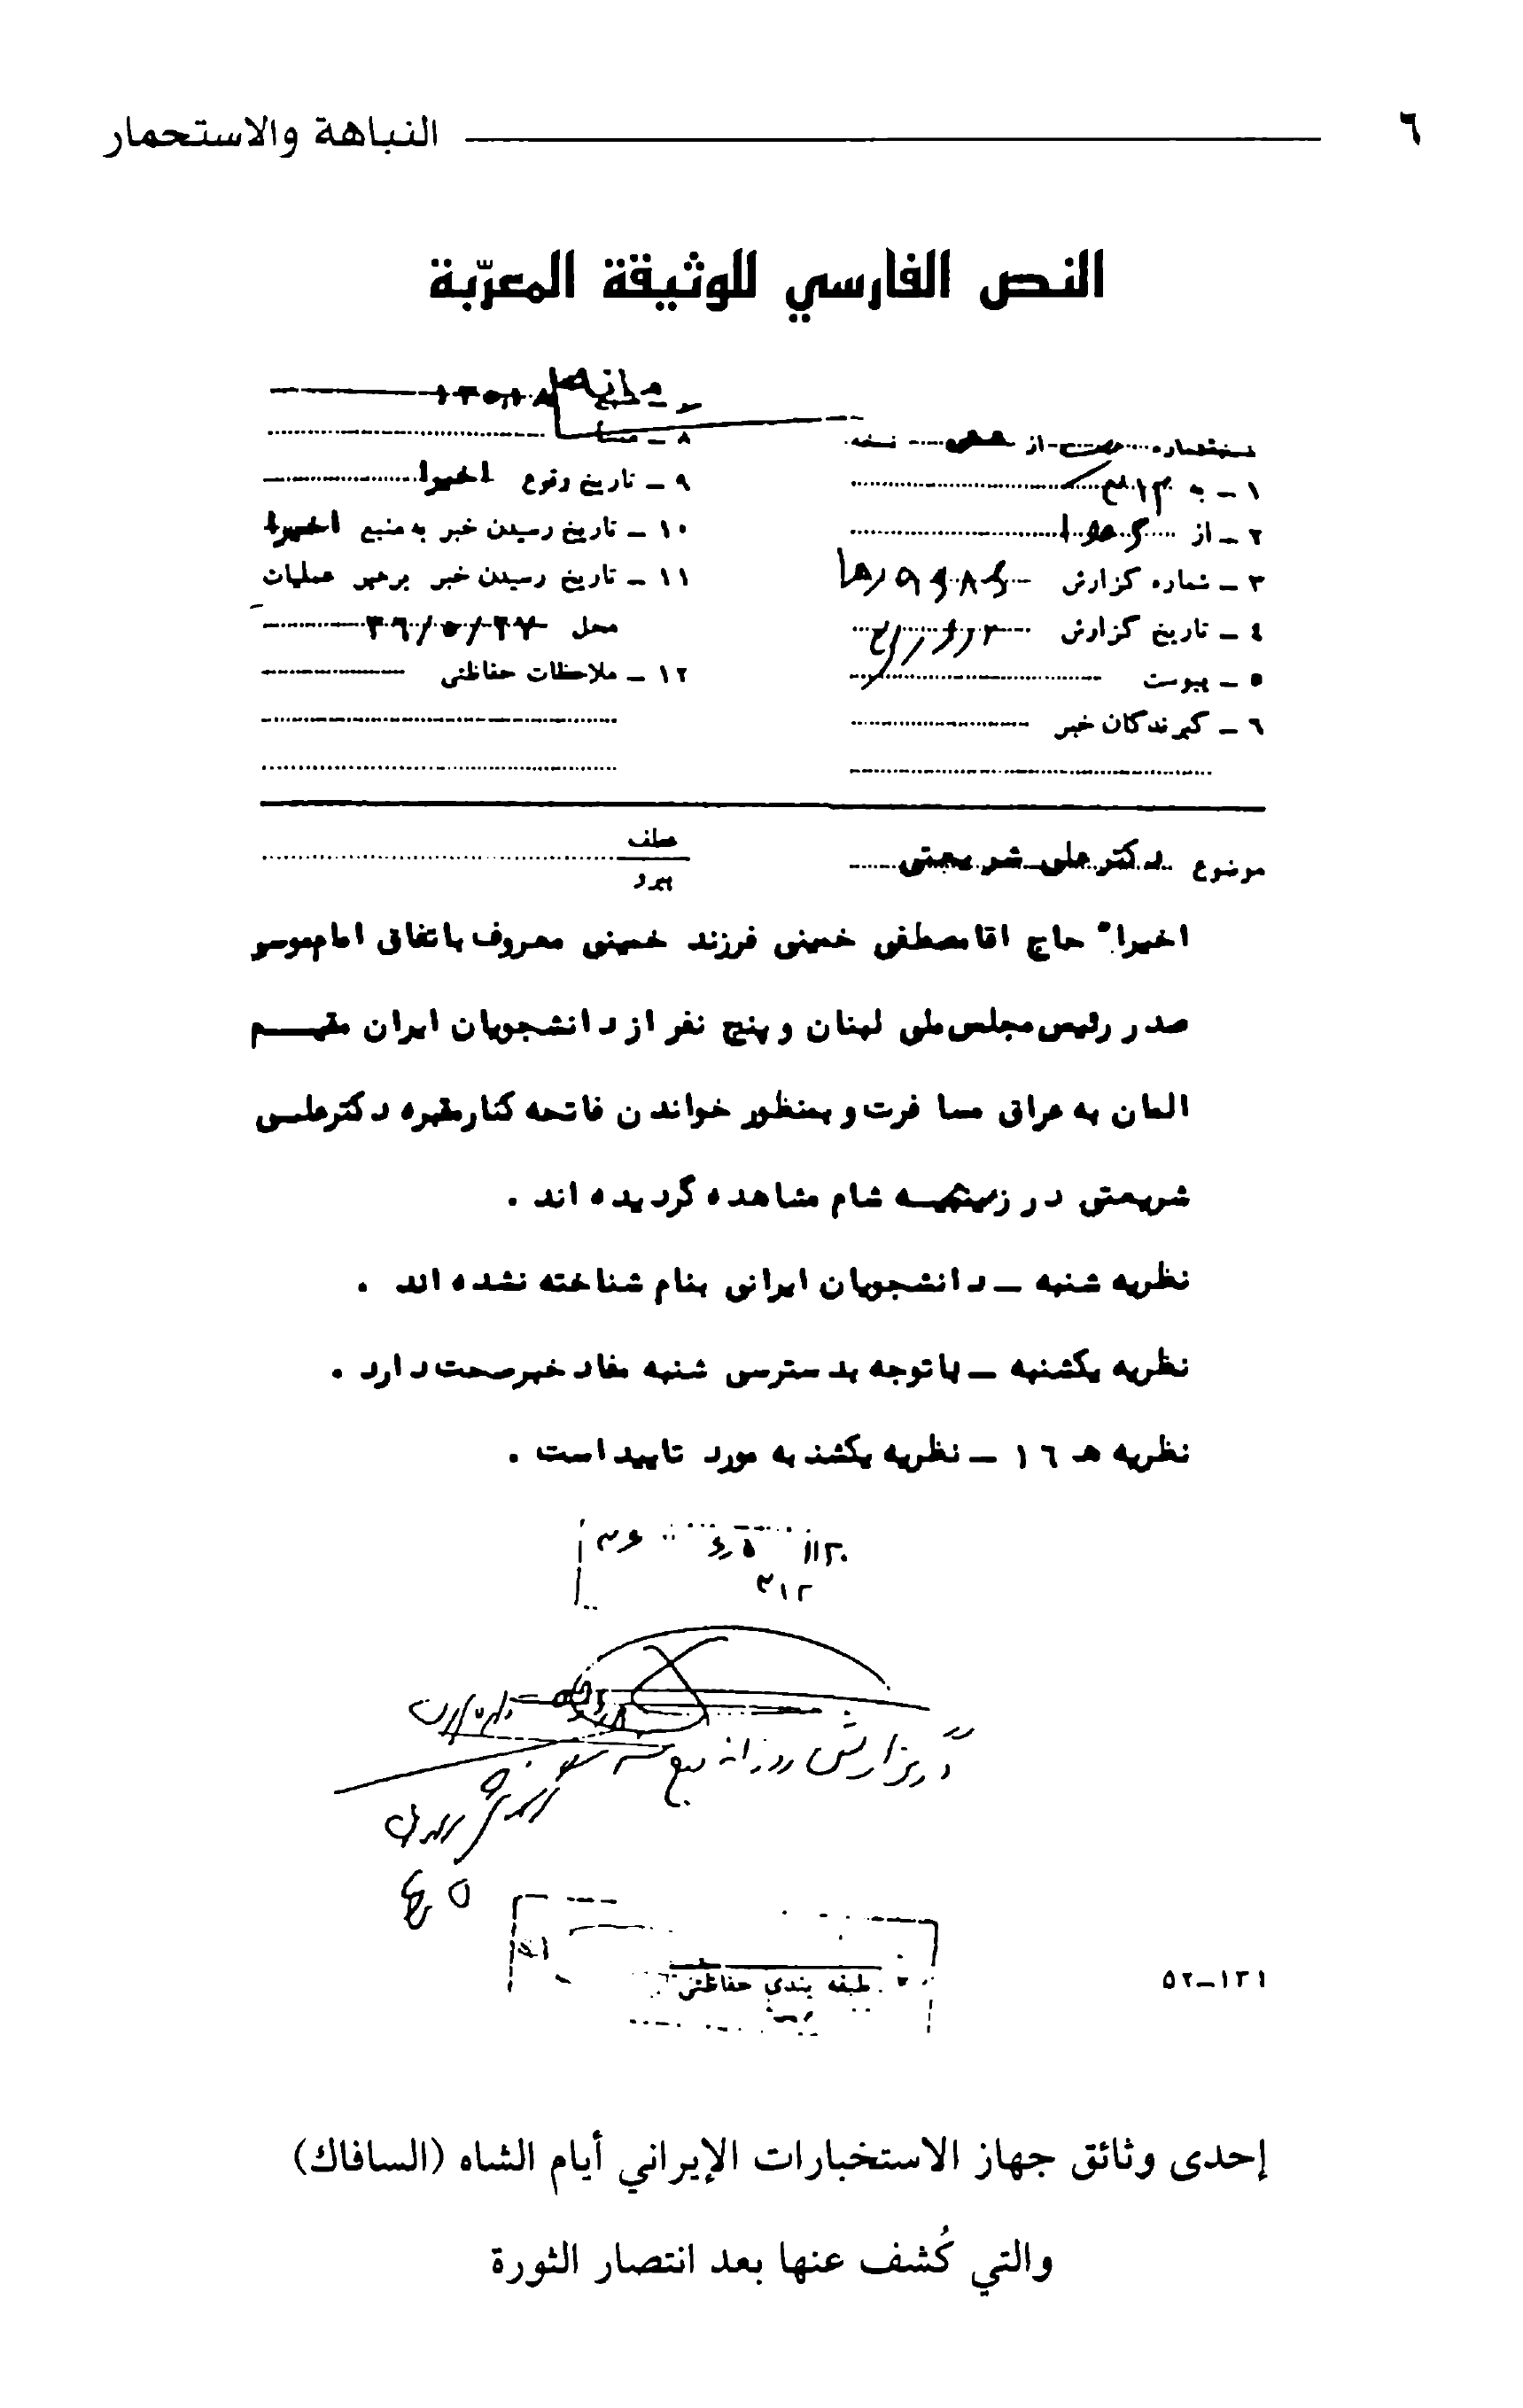 ٦ النباهة والاستحمار
النص الفارسي للوثيقة المعرّبة
٧ – منبع ١٣٥١٨
نسخه شماره از نسخه
٨ – منشأ
١ – به ٣١٢
٩ – تاريخ وقوع اخيرا
٢ – از
١٠ – تاريخ رسيدن خبر به منبع اخيرا
٣ – شماره گزارش
١١ – تاريخ رسيدن خبر برهبر عمليات
٤ – تاريخ گزارش
محل ٣٦/٥/٢٧
٥ – پيوست
١٢ – ملاحظات حفاظتى
٦ – گيرندگان خبر
موضوع دكتر على شريعتى
عطف
پيرو
اخيرا" حاج اقا مصطفى خمينى فرزند خمينى معروف باتفاق امام موسى
صدر رئيس مجلس ملى لبنان و پنج نفر از دانشجويان ايران مقيم
المان به عراق مسافرت و بمنظور خواندن فاتحه كنار مقبره دكتر على
شريعتى در زينبيه شام مشاهده گرديده اند .
نظريه شنبه – دانشجويان ايرانى بنام شناخته نشده اند .
نظريه يكشنبه – با توجه بدسترسى شنبه مفاد خبر صحت دارد .
نظريه هـ ١٦ – نظريه يكشنبه مورد تاييد است .
٣١٢
طبقه بندى حفاظتى
٥٢–١٣١
إحدى وثائق جهاز الاستخبارات الإيراني أيام الشاه (السافاك)
والتي كُشف عنها بعد انتصار الثورة